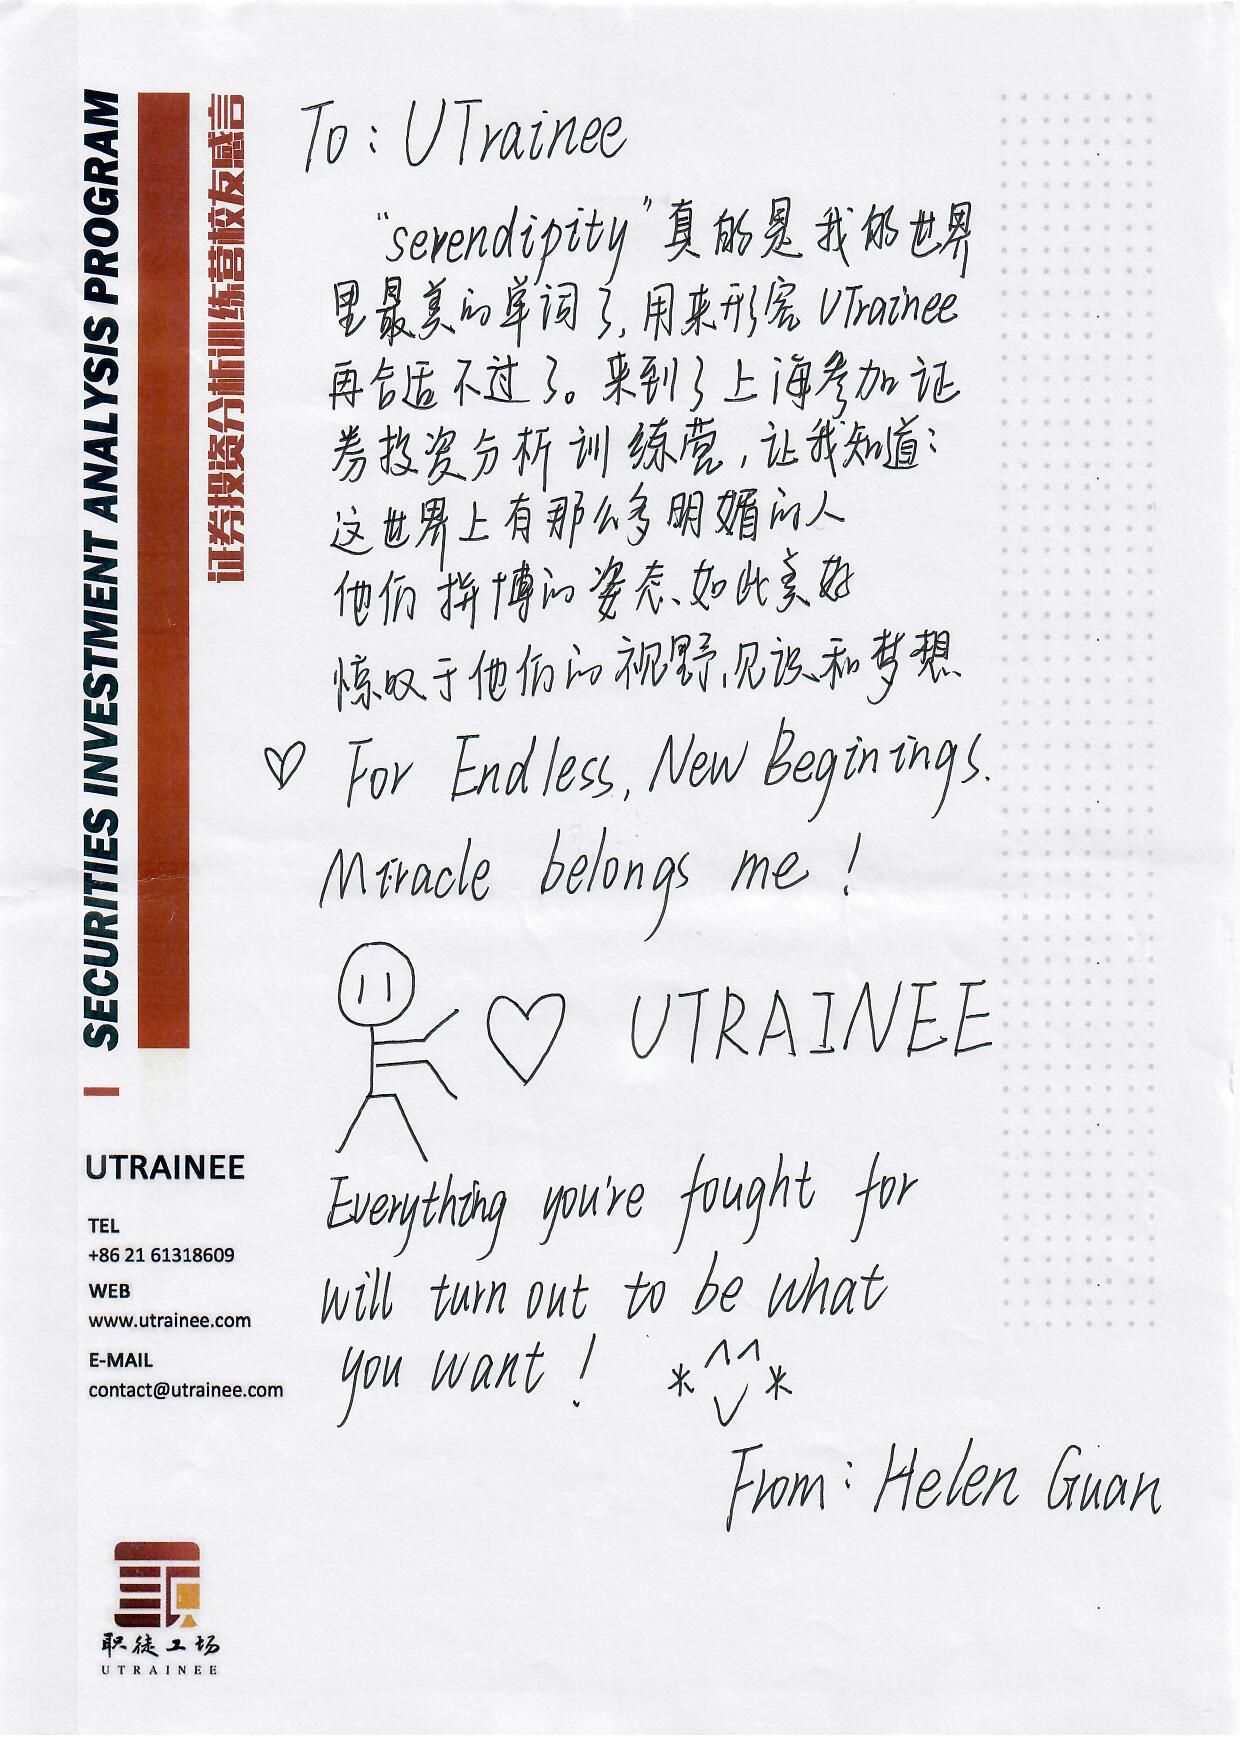 SECURITIES INVESTMENT ANALYSIS PROGRAM
证券投资分析训练营校友感言
To: UTrainee
“serendipity”真的是我的世界
里最美的单词了,用来形容UTrainee
再合适不过了。来到了上海参加证
券投资分析训练营,让我知道:
这世界上有那么多明媚的人
他们拼搏的姿态、如此美好
惊叹于他们的视野、见识和梦想
♡ For Endless, New Beginings.
Miracle belongs me!
♡ UTRAINEE
Everything you're fought for
will turn out to be what
you want! *^^*
From: Helen Guan
UTRAINEE
TEL
+86 21 61318609
WEB
www.utrainee.com
E-MAIL
contact@utrainee.com
职徒工场
UTRAINEE